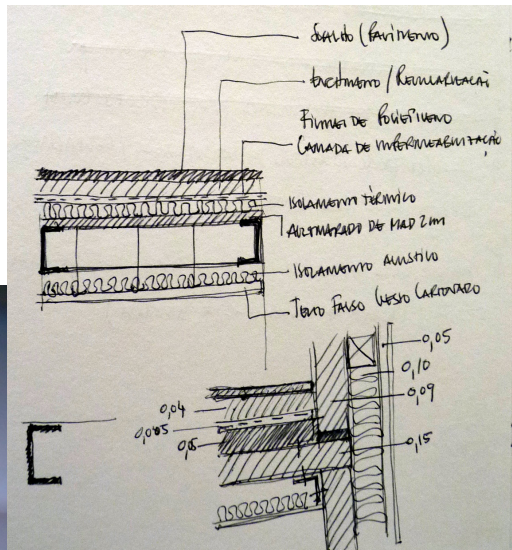 SOALHO (PAVIMENTO)
ENCHIMENTO / REGULARIZAÇÃO
FILME DE POLIETILENO
CAMADA DE IMPERMEABILIZAÇÃO
ISOLAMENTO TÉRMICO
DE MAD 2CM
ISOLAMENTO ACUSTICO
TECTO FALSO GESSO CARTONADO
0,05
0,10
0,09
0,04
0,005
0,05
0,15